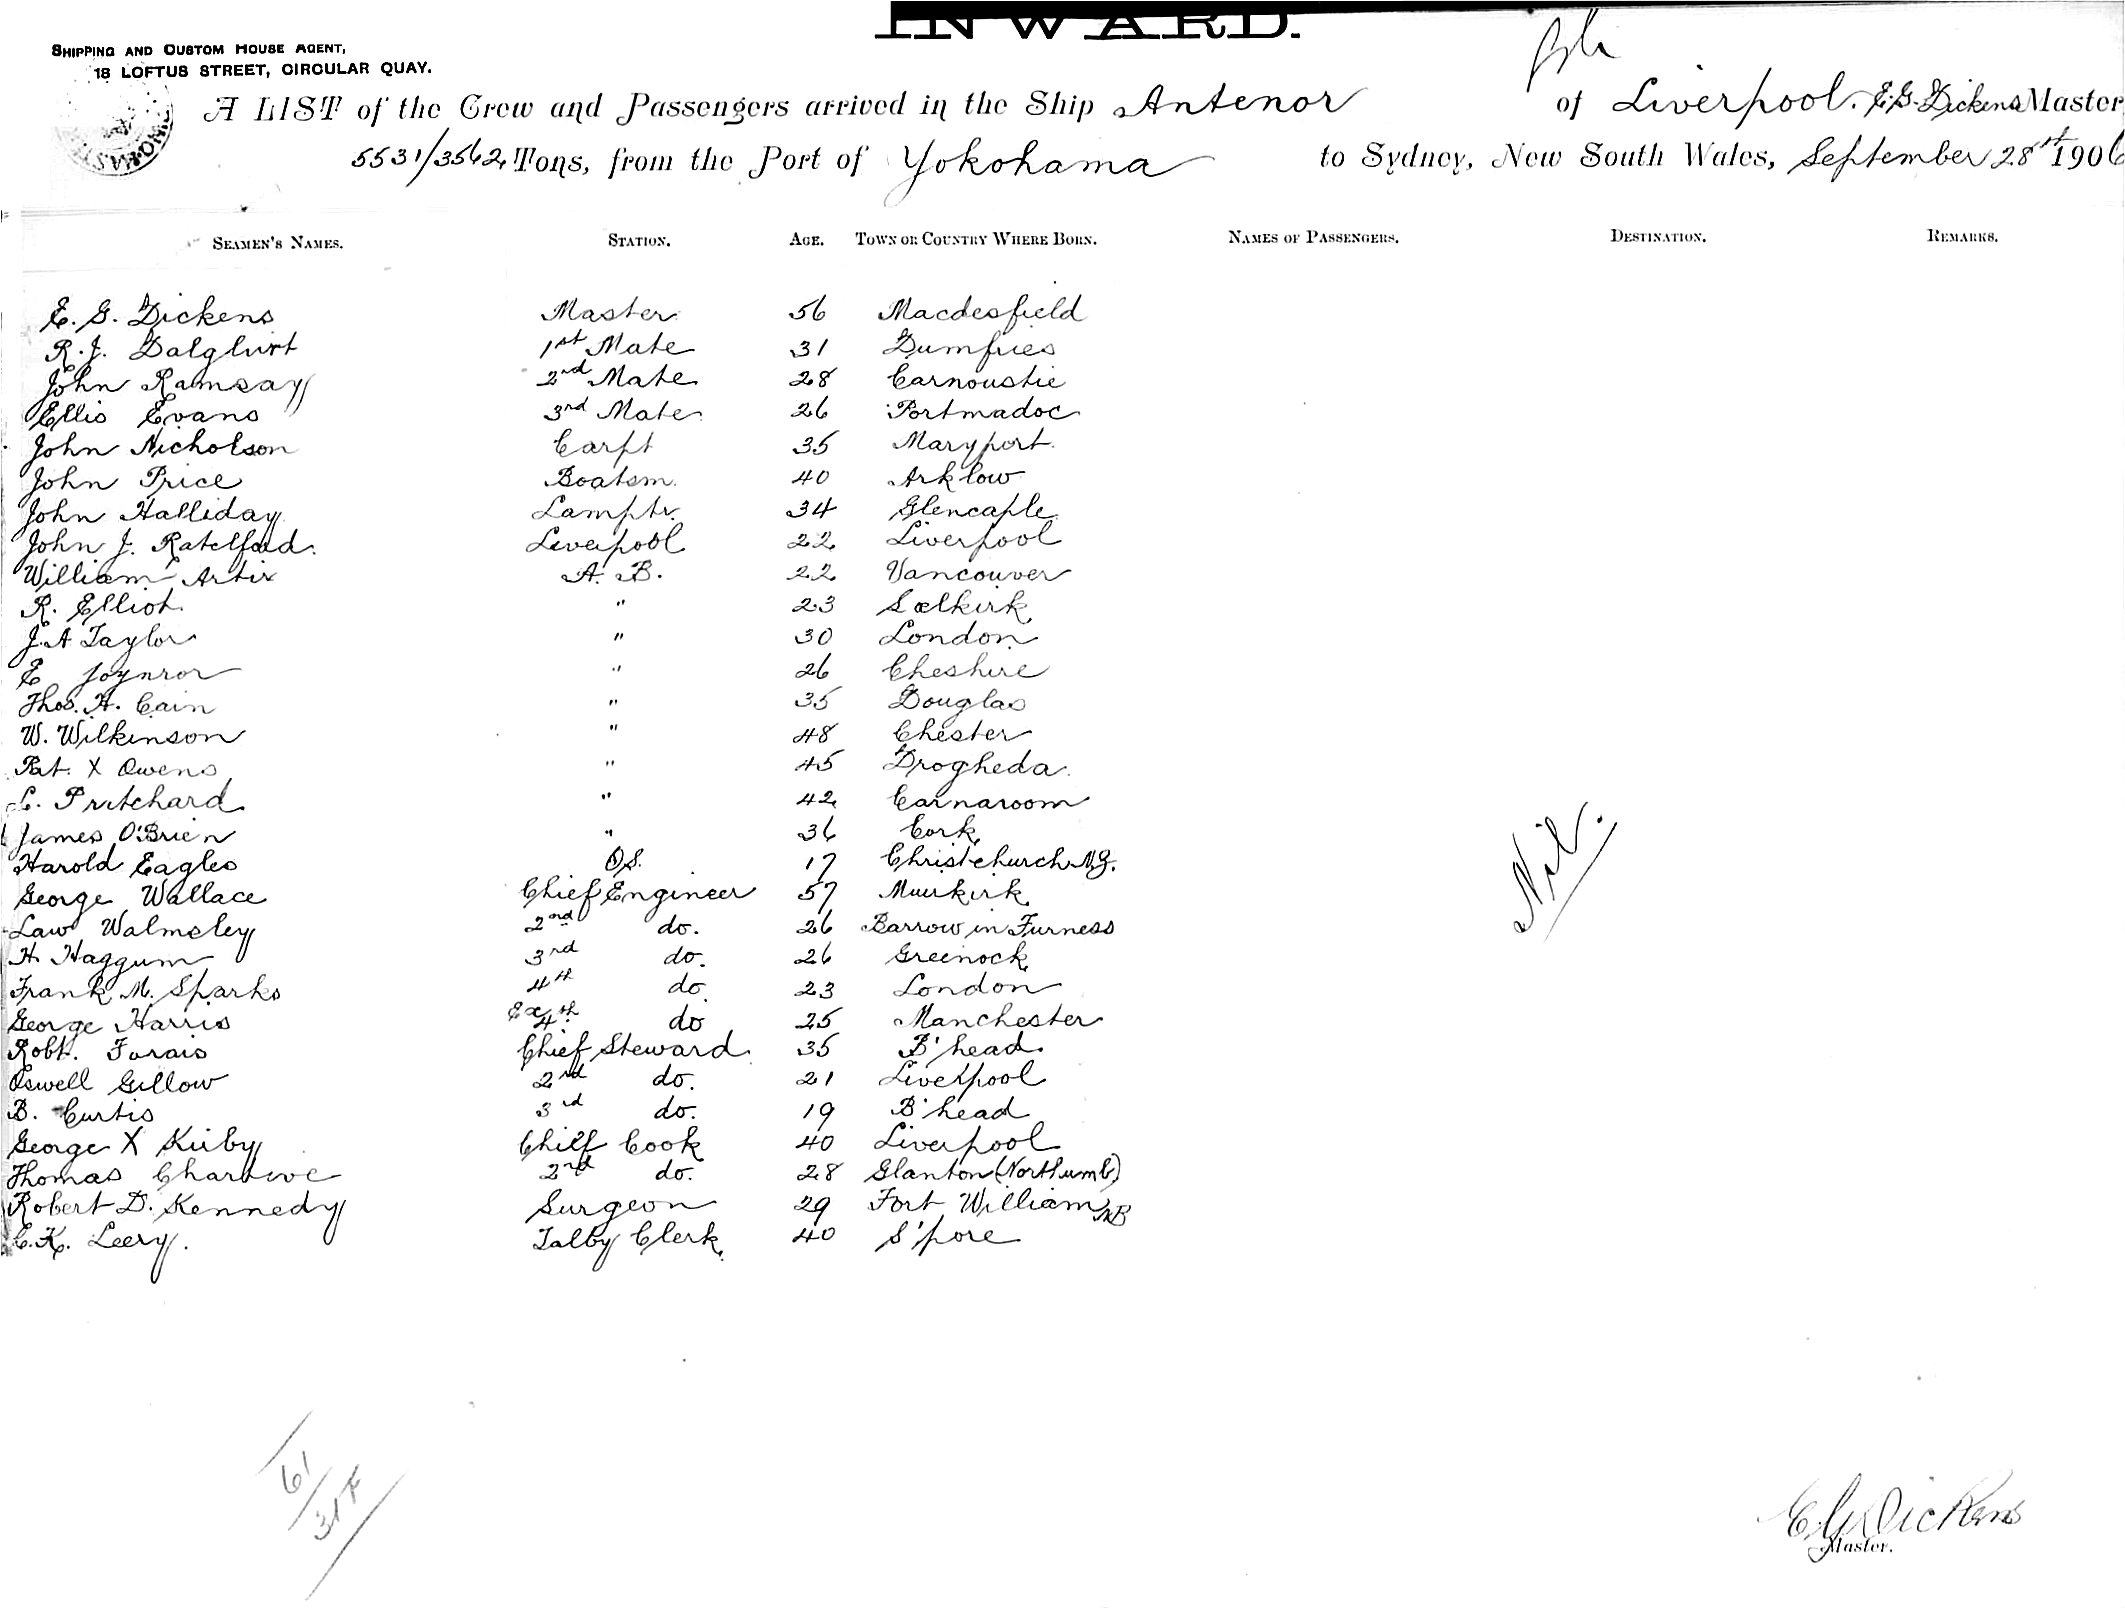 INWARD.
SHIPPING AND CUSTOM HOUSE AGENT,
18 LOFTUS STREET, CIRCULAR QUAY.
A LIST of the Crew and Passengers arrived in the Ship Antenor of Liverpool. E.G. Dickens Master
5531/3562 Tons, from the Port of Yokohama to Sydney, New South Wales, September 28th 1906
SEAMEN'S NAMES. STATION. AGE. TOWN OR COUNTRY WHERE BORN. NAMES OF PASSENGERS. DESTINATION. REMARKS.
E. G. Dickens Master 56 Macdesfield
R. J. Dalglurt 1st Mate 31 Dumfries
John Ramsay 2nd Mate 28 Carnoustie
Ellis Evans 3rd Mate 26 Portmadoc
John Nicholson Carpt 35 Maryport.
John Price Boatsm. 40 Arklow
John Halliday Lamptr. 34 Glencaple
John J. Ratelford. Liverpool 22 Liverpool
William Artix A. B. 22 Vancouver
R. Elliot " 23 Selkirk
J. A Taylor " 30 London
E Joynror " 26 Cheshire
Thos. H. Cain " 35 Douglas
W. Wilkinson " 48 Chester
Pat. X Owens " 45 Drogheda.
L. Pritchard " 42 Carnaroom
James O'Brien " 36 Cork
Harold Eagles O.S. 17 Christchurch N.Z.
George Wallace Chief Engineer 57 Muirkirk
Law Walmsley 2nd do. 26 Barrow in Furness
H. Haggum 3rd do. 26 Greenock
Frank M. Sparks 4th do. 23 London
George Harris Ex 4th do 25 Manchester
Robt. Forais Chief Steward 35 B'head.
Oswell Gillow 2nd do. 21 Liverpool
B. Curtis 3rd do. 19 B'head
George X Kirby Chief Cook 40 Liverpool
Thomas 2nd do. 28 Glanton (Northumb)
Robert D. Kennedy Surgeon 29 Fort William NB
C. K. Leery. Talby Clerk 40 S'pore
Nil.
61
31 F
E G Dickens
Master.